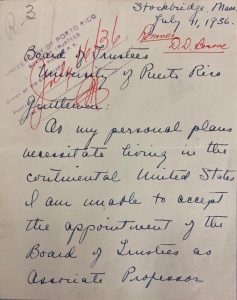 R-3
Stockbridge, Mass
July 11, 1936.
UNIVERSITY OF PORTO RICO
D.D. Boone
Board of Trustees
University of Puerto Rico
Gentlemen:
As my personal plans
necessitate living in the
continental United States
I am unable to accept
the appointment of the
Board of Trustees as
Associate Professor